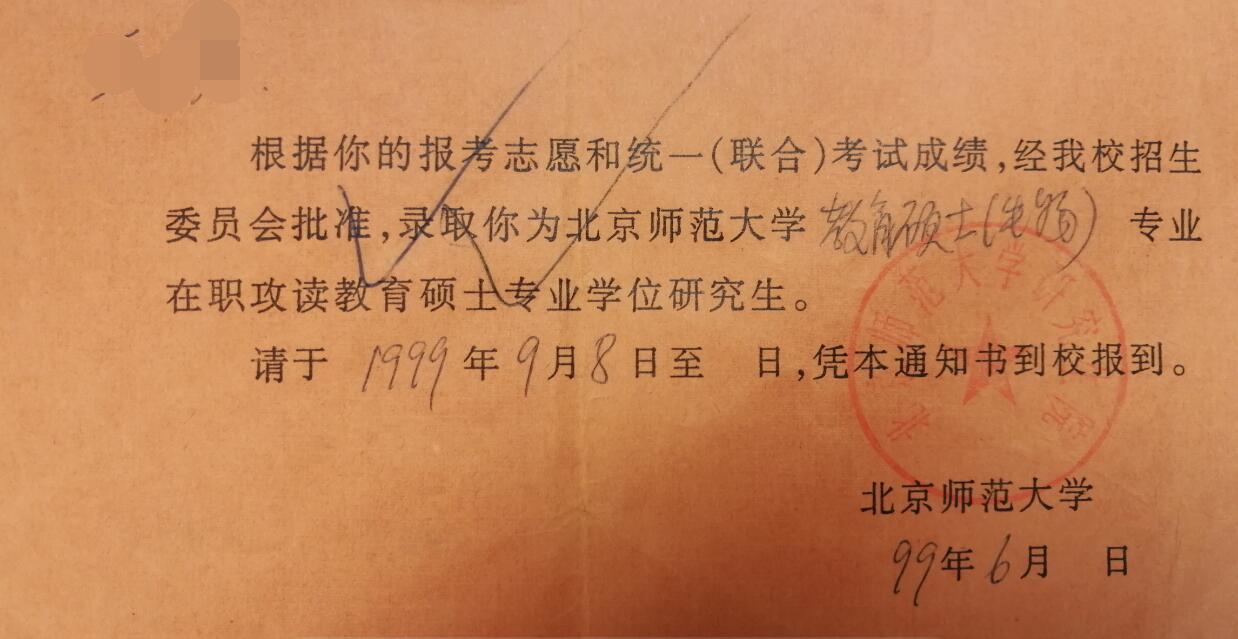 根据你的报考志愿和统一(联合)考试成绩,经我校招生
委员会批准,录取你为北京师范大学 教育硕士(生物) 专业
在职攻读教育硕士专业学位研究生。
请于 1999年9月8日至 日,凭本通知书到校报到。
北京师范大学研究生院
北京师范大学
99年6月 日